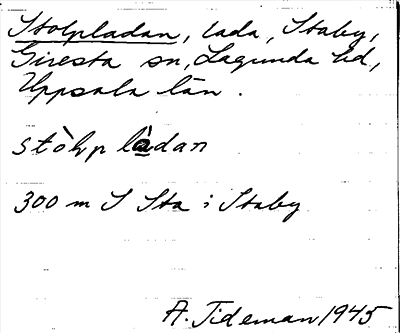 Stolpladan, lada, Staby,
Giresta sn, Lagunda hd,
Uppsala län.
stòlp làdan
300 m S Sta i Staby
A. Tideman 1945